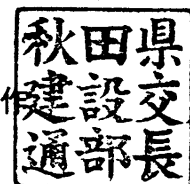 秋田県
建設交
通部長